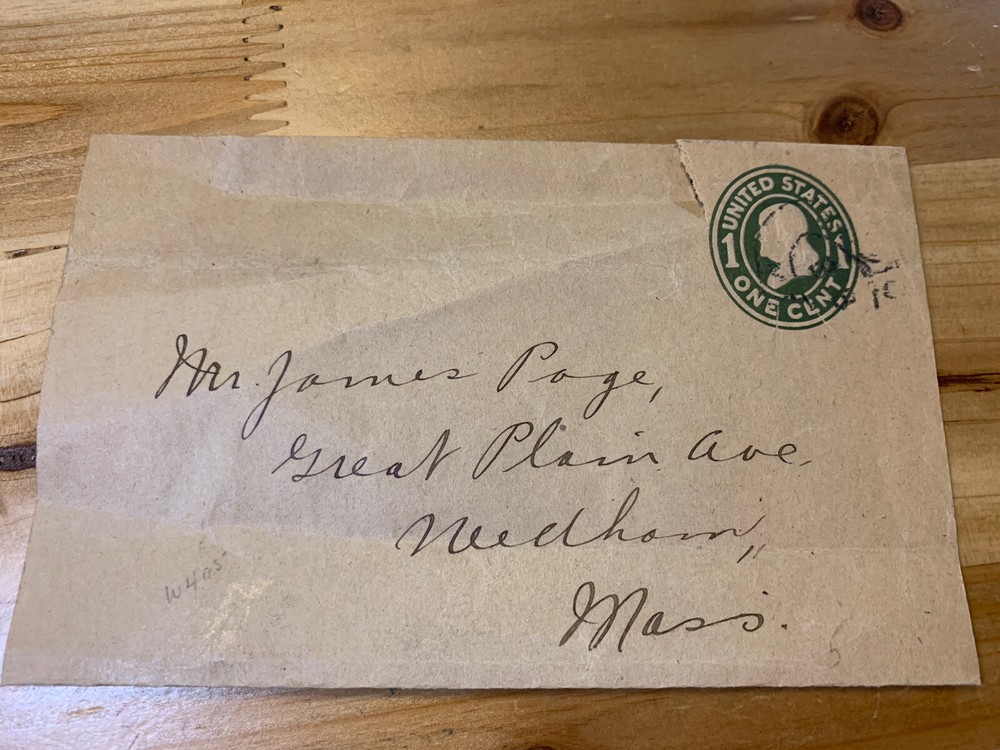 UNITED STATES
1 1
ONE CENT
Mr. James Page,
Great Plain Ave.
Needham,
Mass.
W405
5